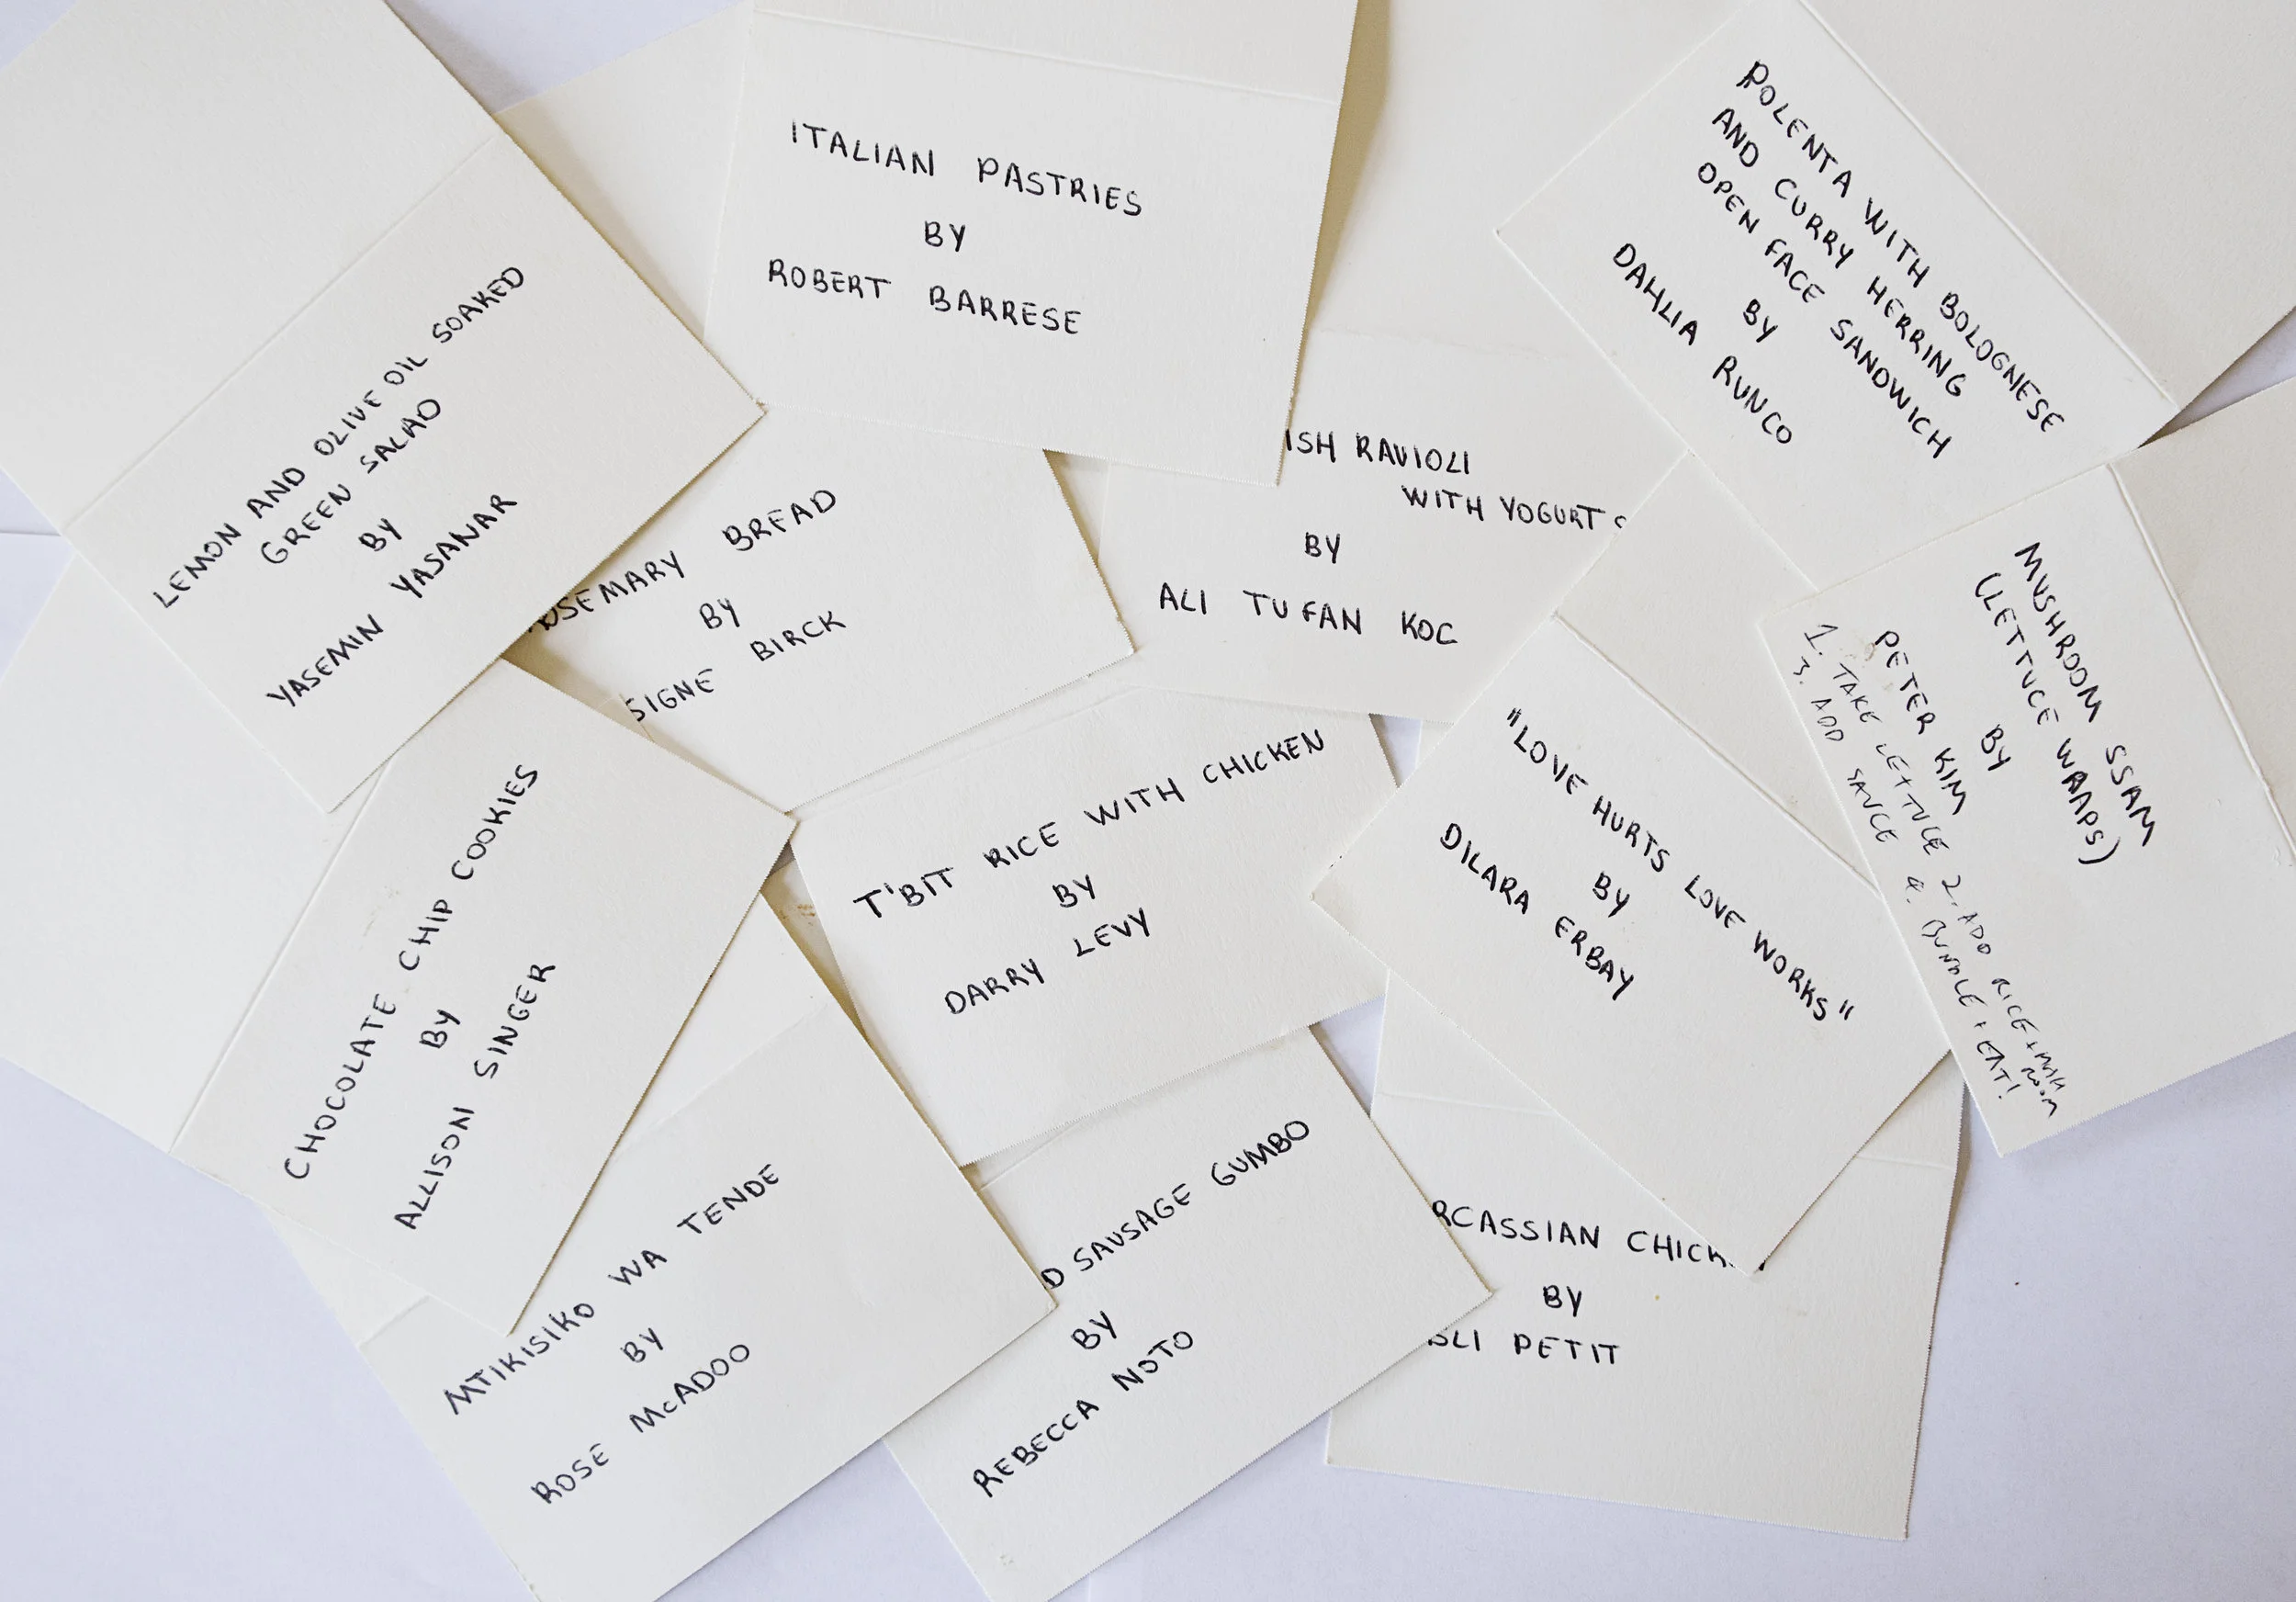 ITALIAN PASTRIES
BY
ROBERT BARRESE
POLENTA WITH BOLOGNESE
AND CURRY HERRING
OPEN FACE SANDWICH
BY
DAHLIA RUNCO
LEMON AND OLIVE OIL SOAKED
GREEN SALAD
BY
YASEMIN YASANAR
OSEMARY BREAD
BY
SIGNE BIRCK
ISH RAVIOLI
WITH YOGURT
BY
ALI TUFAN KOC
MUSHROOM SSAM
(LETTUCE WRAPS)
BY
PETER KIM
1. TAKE LETTUCE 2. ADD RICE + MUSHROOM
3. ADD SAUCE 4. BUNDLE + EAT!
CHOCOLATE CHIP COOKIES
BY
ALLISON SINGER
T'BIT RICE WITH CHICKEN
BY
DARRY LEVY
"LOVE HURTS LOVE WORKS"
BY
DILARA ERBAY
MTIKISIKO WA TENDE
BY
ROSE McADOO
D SAUSAGE GUMBO
BY
REBECCA NOTO
RCASSIAN CHICK
BY
SLI PETIT